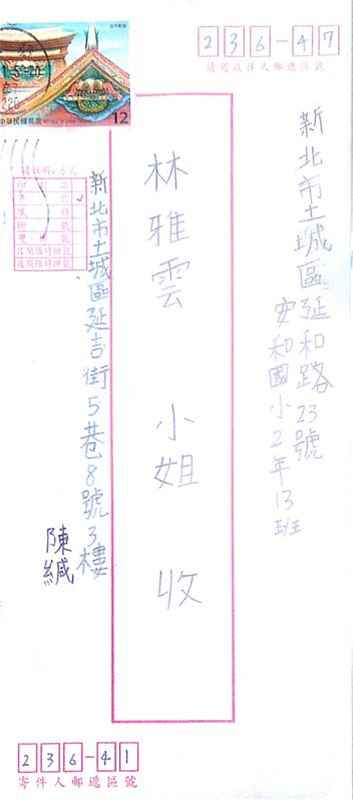 236-47
請寫收件人郵遞區號
新北市土城區延和路23號
安和國小2年13班
林雅雲 小姐 收
12
中華民國郵票
新北市土城區延吉街5巷8號3樓
陳緘
236-41
寄件人郵遞區號